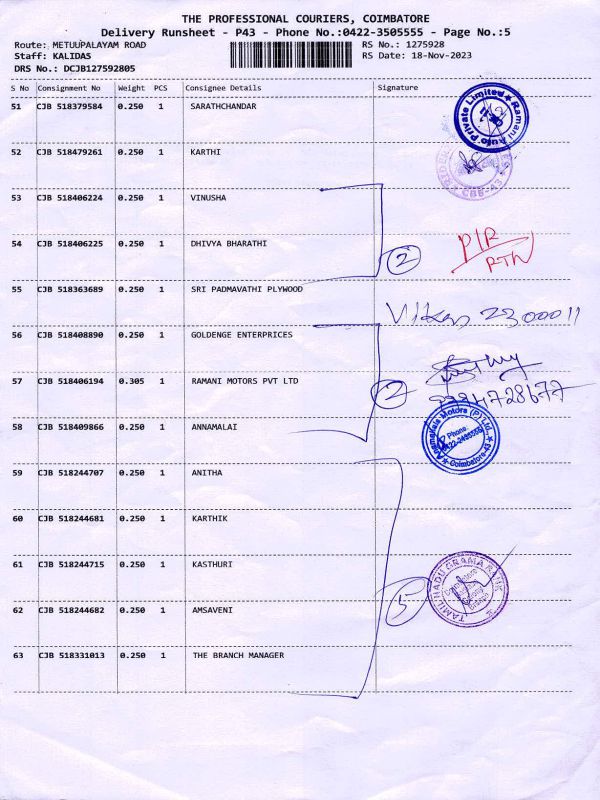 THE PROFESSIONAL COURIERS, COIMBATORE
Delivery Runsheet - P43 - Phone No.:0422-3505555 - Page No.:5
Route: METUUPALAYAM ROAD RS No.: 1275928
Staff: KALIDAS RS Date: 18-Nov-2023
DRS No.: DCJB127592805
S No Consignment No Weight PCS Consignee Details Signature
51 CJB 518379584 0.250 1 SARATHCHANDAR
Ramani Auto Private Limited
52 CJB 518479261 0.250 1 KARTHI
CBE-43
53 CJB 518406224 0.250 1 VINUSHA
54 CJB 518406225 0.250 1 DHIVYA BHARATHI
2
P/R
RTN
55 CJB 518363689 0.250 1 SRI PADMAVATHI PLYWOOD
2300011
56 CJB 518408890 0.250 1 GOLDENGE ENTERPRICES
57 CJB 518406194 0.305 1 RAMANI MOTORS PVT LTD
2
58 CJB 518409866 0.250 1 ANNAMALAI
Motors (P) Ltd.
Phone:
Coimbatore
59 CJB 518244707 0.250 1 ANITHA
60 CJB 518244681 0.250 1 KARTHIK
61 CJB 518244715 0.250 1 KASTHURI
5
TAMIL NADU GRAMA BANK
62 CJB 518244682 0.250 1 AMSAVENI
63 CJB 518331013 0.250 1 THE BRANCH MANAGER